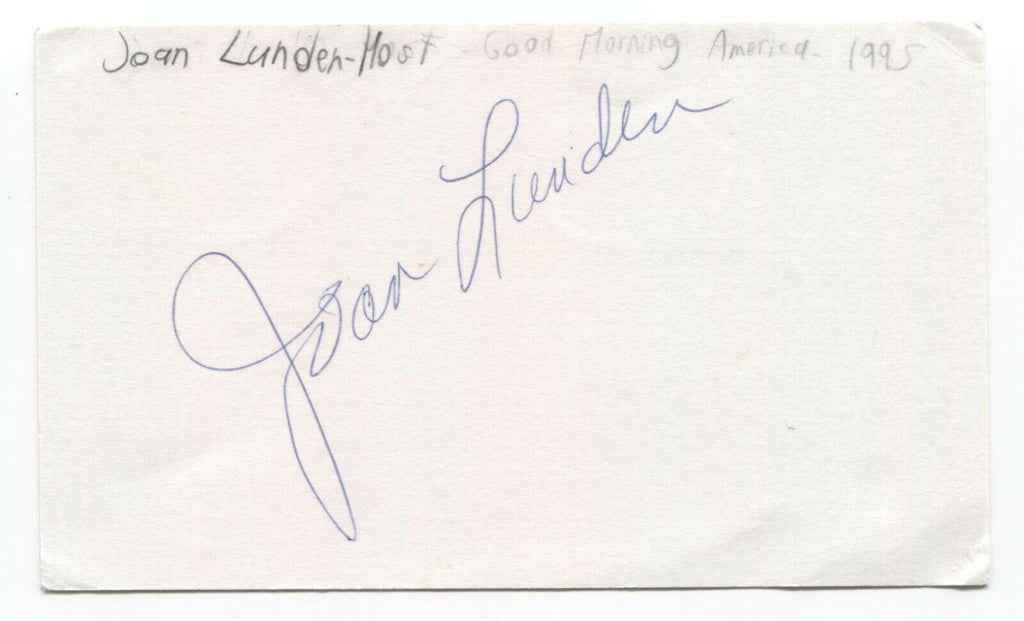 Joan Lunden-Host - Good Morning America - 1995
Joan Lunden